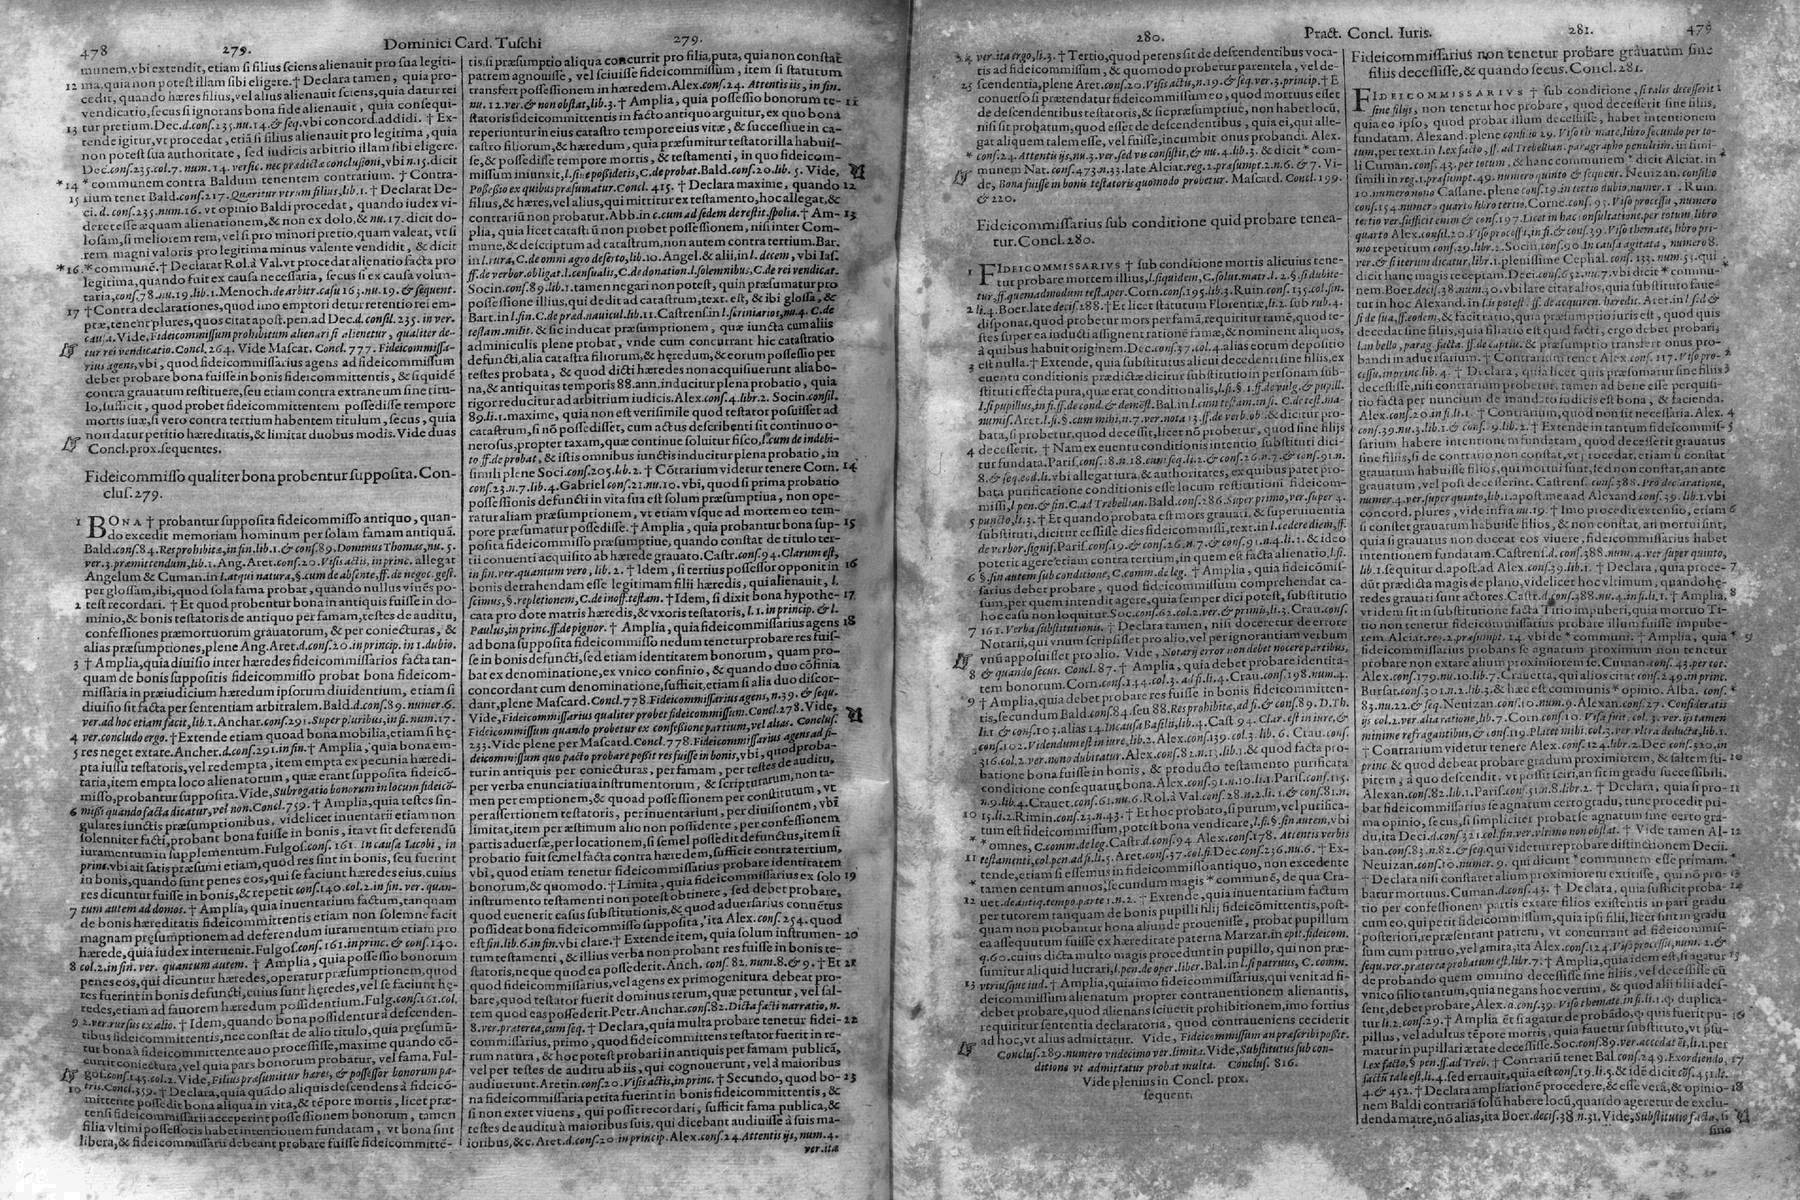 478 279. Dominici Card. Tuschi 279.
munem, vbi extendit, etiam si filius sciens alienauit pro sua legiti-
12 ma, quia non potest illam sibi eligere. † Declara tamen, quia pro-
cedit, quando hæres filius, vel alius alienauit sciens, quia datur rei
vendicatio, secus si ignorans bona fide alienauit, quia consequi-
13 tur pretium. Dec. d. conf. 235. nu. 14. & seq. vbi concord. addidi. † Ex-
tende igitur, vt procedat, etiã si filius alienauit pro legitima, quia
non potest sua authoritate, sed iudicis arbitrio illam sibi eligere.
Dec. conf. 235. col. 7. num. 14. versic. nec prædictæ conclusioni, vbi n. 15. dicit
*14 * communem contra Baldum tenentem contrarium. † Contra-
15 rium tenet Bald. conf. 217. Quæritur vtrum filius, lib. 1. † Declarat De-
ci. d. conf. 235. num. 16. vt opinio Baldi procedat, quando iudex vi-
deret esse æquam alienationem, & non ex dolo, & nu. 17. dicit do-
losam, si meliorem rem, vel si pro minori pretio, quam valeat, vt si
rem magni valoris pro legitima minus valente vendidit, & dicit
*16. * communẽ. † Declarat Rol. à Val. vt procedat alienatio facta pro
legitima, quando fuit ex causa necessaria, secus si ex causa volun-
taria, conf. 78. nu. 19. lib. 1. Menoch. de arbit. casu 163. nu. 19. & sequent.
17 † Contra declarationes, quod imo emptori detur retentio rei em-
ptæ, tenent plures, quos citat apost. pen. ad Dec. d. consil. 235. in ver.
causa. Vide, Fideicommissum prohibitum alienari si alienetur, qualiter de-
tur rei vendicatio. Concl. 264. Vide Mascar. Concl. 777. Fideicommissa-
rius agens, vbi, quod fideicommissarius agens ad fideicommissum
debet probare bona fuisse in bonis fideicommittentis, & siquidẽ
contra grauatum restituere, seu etiam contra extraneum sine titu-
lo, sufficit, quod probet fideicommittentem possedisse tempore
mortis suæ, si vero contra tertium habentem titulum, secus, quia
non datur petitio hæreditatis, & limitat duobus modis. Vide duas
Concl. prox. sequentes.
Fideicommisso qualiter bona probentur supposita. Con-
clus. 279.
1 BONA † probantur supposita fideicommisso antiquo, quan-
do excedit memoriam hominum per solam famam antiquã.
Bald. conf. 84. Res prohibitæ, in fin. lib. 1. & conf. 89. Dominus Thomas, nu. 5.
ver. 3. præmittendum, lib. 1. Ang. Aret. conf. 20. Visis actis, in princ. allegat
Angelum & Cuman. in l. atqui natura, §. cum de absente, ff. de negoc. gest.
per glossam, ibi, quod sola fama probat, quando nullus viuẽs po-
2 test recordari. † Et quod probentur bona in antiquis fuisse in do-
minio, & bonis testatoris de antiquo per famam, testes de auditu,
confessiones præmortuorum grauatorum, & per coniecturas, &
alias præsumptiones, plene Ang. Aret. d. conf. 20. in princip. in 1. dubio.
3 † Amplia, quia diuisio inter hæredes fideicommissarios facta tan-
quam de bonis suppositis fideicommisso probat bona fideicom-
missaria in præiudicium hæredum ipsorum diuidentium, etiam si
diuisio sit facta per sententiam arbitralem. Bald. d. conf. 89. numer. 6.
ver. ad hoc etiam facit, lib. 1. Anchar. conf. 291. Super pluribus, in fi. num. 17.
4 ver. concludo ergo. † Extende etiam quod bona mobilia, etiam si hę-
5 res neget extare. Ancher. d. conf. 291. in fin. † Amplia, quia bona em-
pta iussu testatoris, vel redempta, item empta ex pecunia hæredi-
taria, item empta loco alienatorum, quæ erant supposita fideicõ-
misso, probantur supposita. Vide, Subrogatio bonorum in locum fideicõ-
6 missi quando facta dicatur, vel non. Concl. 759. † Amplia, quia testes sin-
gulares iunctis præsumptionibus, videlicet inuentarii etiam non
solenniter facti, probant bona fuisse in bonis, ita vt sit deferendũ
iuramentum in supplementum. Fulgos. conf. 161. In causa Iacobi, in
princ. vbi ait satis præsumi etiam, quod res sint in bonis, seu fuerint
in bonis, quando sunt penes eos, qui se faciunt hæredes eius, cuius
res dicuntur fuisse in bonis, & repetit conf. 140. col. 2. in fin. ver. quan-
7 tum autem ad domos. † Amplia, quia inuentarium factum, tanquam
de bonis hæreditatis fideicommittentis etiam non solemne facit
magnam pręsumptionem ad deferendum iuramentum etiam pro
hærede, quia iudex interuenit. Fulgos. conf. 161. in princ. & conf. 140.
8 col. 2. in fin. ver. quantum autem. † Amplia, quia possessio bonorum
penes eos, qui dicuntur hæredes, operatur præsumptionem, quod
res fuerint in bonis defuncti, cuius sunt hęredes, vel se faciunt hę-
redes, etiam ad fauorem hæredum possidentium. Fulg. conf. 161. col.
9 2. ver. rursus ex alio. † Idem, quando bona possidentur à descenden-
tibus fideicommissarii, nec constat de alio titulo, quia pręsumũ-
tur bona à fideicommittente auo processisse, maxime quando cõ-
currit coniectura, vel quia pars bonorum probatur, vel fama. Ful-
gos. conf. 145. col. 2. Vide, Filius præsumitur hæres, & possessor bonorum pa-
10 tris. Concl. 359. † Declara, quia quãdo aliquis descendens à fideicõ-
mittente possedit bona aliqua in vita, & tẽpore mortis, licet præ-
tensi fideicommissarii acceperint possessionem bonorum, tamen
filia vltimi possessoris habet intentionem fundatam, vt bona sint
libera, & fideicommissarii debeant probare fuisse fideicommittẽ-
tis, si præsumptio aliqua concurrit pro filia, puta, quia non constat
patrem agnouisse, vel sciuisse fideicommissum, item si statutum
transfert possessionem in hæredem. Alex. conf. 24. Attentis iis, in fin.
nu. 12. ver. & non obstat, lib. 3. † Amplia, quia possessio bonorum te- 11
statoris fideicommittentis in facto antiquo arguitur, ex quo bona
reperiuntur in eius catastro tempore eius vitæ, & successiue in ca-
tastro filiorum, & hæredum, quia præsumitur testator illa habuis-
se, & possedisse tempore mortis, & testamenti, in quo fideicom-
missum iniunxit, l. siue possidetis, C. de probat. Bald. conf. 20. lib. 5. Vide,
Possessio ex quibus præsumatur. Concl. 415. † Declara maxime, quando 12
filius, & hæres, vel alius, qui mittitur ex testamento, hoc allegat, &
contrariũ non probatur. Abb. in c. cum ad sedem de restit. spolia. † Am- 13
plia, quia licet catastrũ non probet possessionem, nisi inter Com-
mune, & descriptum ad catastrum, non autem contra tertium. Bar.
in l. rura, C. de omni agro deserto, lib. 10. Angel. & alii, in l. decem, vbi Ias.
ff. de verbor. obligat. l. censualis, C. de donation. l. solemnibus, C. de rei vendicat.
Socin. conf. 89. lib. 1. tamen negari non potest, quin præsumatur pro
possessione illius, qui dedit ad catastrum, text. est, & ibi glossa, &
Bart. in l. fin. C. de præd. nauicul. lib. 11. Castrens. in l. scriniarios, nu. 4. C. de
testam. milit. & sic inducat præsumptionem, quæ iuncta cum aliis
adminiculis plene probat, vnde cum concurrant hic catastratio
defuncti, alia catastra filiorum, & hęredum, & eorum possessio per
testes probata, & quod dicti hæredes non acquisiuerunt alia bo-
na, & antiquitas temporis 88. ann. inducitur plena probatio, quia
rigor reducitur ad arbitrium iudicis. Alex. conf. 4. libr. 2. Socin. consil.
89. li. 1. maxime, quia non est verisimile quod testator posuisset ad
catastrum, si nõ possedisset, cum actus describenti sit continuo o-
nerosus, propter taxam, quæ continue soluitur fisco, l. cum de indebi-
to ff. de probat, & istis omnibus iunctis inducitur plena probatio, in
simili plene Soci. conf. 205. lib. 2. † Cõtrarium videtur tenere Corn. 14
conf. 23. n. 7. lib. 4. Gabriel conf. 21. nu. 10. vbi, quod si prima probatio
possessionis defuncti in vita sua est solum præsumptiua, non ope-
ratur aliam præsumptionem, vt etiam vsque ad mortem eo tem-
pore præsumatur possedisse. † Amplia, quia probantur bona sup- 15
posita fideicommisso præsumptiue, quando constat de titulo ter-
tii conuenti acquisito ab hærede grauato. Castr. conf. 94. Clarum est,
in fin. ver. quantum vero, lib. 2. † Idem, si tertius possessor opponit in 16
bonis detrahendam esse legitimam filii hæredis, qui alienauit, l.
scimus, §. repletionem, C. de inoff. testam. † Idem, si dixit bona hypothe- 17
cata pro dote matris hæredis, & vxoris testatoris, l. 1. in princip. & l.
Paulus, in princ. ff. de pignor. † Amplia, quia fideicommissarius agens 18
ad bona supposita fideicommisso nedum tenetur probare res fuis-
se in bonis defuncti, sed etiam identitatem bonorum, quam pro-
bat ex denominatione, ex vnico confinio, & quando duo cõfinia
concordant cum denominatione, sufficit, etiam si alia duo discor-
dant, plene Mascard. Concl. 778. Fideicommissarius agens, n. 39. & sequ.
Vide, Fideicommissarius qualiter probet fideicommissum. Concl. 278. Vide,
Fideicommissum quando probetur ex confessione partium, vel alias. Conclus.
233. Vide plene per Mascard. Concl. 778. Fideicommissarius agens ad fi-
deicommissum quo pacto probare possit res fuisse in bonis, vbi, quod proba-
tur in antiquis per coniecturas, per famam, per testes de auditu,
per verba enunciatiua instrumentorum, & scripturarum, non ta-
men per emptionem, & quoad possessionem per constitutum, vt
per assertionem testatoris, per inuentarium, per diuisionem, vbi
limitat, item per æstimum alio non possidente, per confessionem
partis aduersæ, per locationem, si semel possedit defunctus, item si
probatio fuit semel facta contra hæredem, sufficit contra tertium,
vbi, quod etiam tenetur fideicommissarius probare identitatem
bonorum, & quomodo. † Limita, quia fideicommissarius ex solo 19
instrumento testamenti non potest obtinere, sed debet probare,
quod euenerit casus substitutionis, & quod aduersarius conuẽtus
possideat bona fideicommisso supposita, ita Alex. conf. 254. quod
est fin. lib. 6. in fin. vbi clare. † Extende item, quia solum instrumen- 20
tum testamenti, & illius verba non probant res fuisse in bonis te-
statoris, neque quod ea possederit. Anch. conf. 82. num. 8. & 9. † Et 21
quod fideicommissarius, vel agens ex primogenitura debeat pro-
bare, quod testator fuerit dominus rerum, quæ petuntur, vel sal-
tem quod eas possederit. Petr. Anchar. conf. 82. Dicta facti narratio, n.
8. ver. præterea, cum seq. † Declara, quia multa probare tenetur fidei- 22
commissarius, primo, quod fideicommittens testator fuerit in re-
rum natura, & hoc potest probari in antiquis per famam publicã,
vel per testes de auditu ab iis, qui cognouerunt, vel à maioribus
audiuerunt. Aretin. conf. 20. Visis actis, in princ. † Secundo, quod bo- 23
na fideicommissaria petita fuerint in bonis fideicommittentis, &
si non extet viuens, qui possit recordari, sufficit fama publica, &
testes de auditu à maioribus suis, qui dicebant audiuisse à suis ma-
ioribus, &c. Aret. d. conf. 20 in princip. Alex. conf. 24. Attentis ijs, num. 4.
ver. ita
280. Pract. Concl. Iuris. 281. 479
ver. ita ergo, li. 3. † Tertio, quod petens sit de descendentibus voca-
tis ad fideicommissum, & quomodo probetur parentela, vel de-
25 scendentia, plene Aret. conf. 20. Visis actis, n. 19. & seq. ver. 3. princip. † E
conuerso si prætendatur fideicommissum eo, quod mortuus esset
de descendentibus testatoris, & sic præsumptiue, non habet locũ,
nisi sit probatum, quod esset de descendentibus, quia ei, qui alle-
gat aliquem talem esse, vel fuisse, incumbit onus probandi. Alex.
* conf. 24. Attentis ijs, nu. 3. ver. sed vis consistit, & nu. 4. lib. 3. & dicit * com-
munem Nat. conf. 473. n. 33. late Alciat. reg. 2. præsumpt. 2. n. 6. & 7. Vi-
de, Bona fuisse in bonis testatoris quomodo probetur. Mascard. Concl. 199.
& 220.
Fideicommissarius sub conditione quid probare tenea-
tur. Concl. 280.
1 FIDEICOMMISSARIVS † sub conditione mortis alicuius tene-
tur probare mortem illius, l. siquidem, C. solut. matr. l. 2. §. si dubite-
tur, ff. quemadmodum test. aper. Corn. conf. 195. lib. 3. Ruin. conf. 135. col. fin.
2 li. 4. Boer. late decis. 288. † Et licet statutum Florentiæ, li. 2. sub rub. 4.
disponat, quod probetur mors per famã, requiritur tamẽ, quod te-
stes super ea inducti assignent rationẽ famæ, & nominent aliquos,
à quibus habuit originem. Dec. conf. 37. col. 4. alias eorum depositio
3 est nulla. † Extende, quia substitutus alicui decedenti sine filiis, ex
euentu conditionis prædictæ dicitur substitutio in personam sub-
stituti effecta pura, quæ erat conditionalis, l. si. §. 1. ff. de vulg. & pupill.
l. si pupillus, in fi. ff. de cond. & demost. Bal. in l. cum testam. in fi. C. de test. ma-
numis. Aret. l. si. §. cum mihi, n. 7. ver. nota 13. ff. de verb. ob. & dicitur pro-
bata, si probetur, quod decessit, licet nõ probetur, quod sine filijs
4 decesserit. † Nam ex euentu conditionis intentio substituti dici-
tur fundata. Paris. conf. 18. n. 18. cum seq. li. 2. & conf. 26. n. 7. & conf. 91. n.
8. & seq. eod. li. vbi allegat iura, & authoritates, ex quibus patet pro-
bata purificatione conditionis esse locum restitutioni fideicom-
missi, per l. fin. C. ad Trebellian. Bald. conf. 286. Super primo, ver. super 4.
5 puncto, li. 3. † Et quando probata est mors grauati, & superuiuentia
substituti, dicitur cessisse dies fideicommissi, text. in l. cedere diem, ff.
de verbor. signif. Paris. conf. 19. & conf. 26. n. 7. & conf. 91. n. 4. li. 1. & ideo
poterit agere etiam contra tertium, in quem est facta alienatio, l. si.
6 §. sin autem sub conditione, C. comm. de leg. † Amplia, quia fideicomis-
sarius debet probare, quod fideicommissum comprehendat ca-
sum, per quem intendit agere, quia semper dici potest, substitutio
hoc casu non loquitur. Soc. conf. 62. col. 2. ver. & primo, li. 3. Crau. conf.
7 161. Verba substitutionis. † Declara tamen, nisi doceretur de errore
Notarii, qui vnum scripsisset pro alio, vel per ignorantiam verbum
vnũ apposuisset pro alio. Vide, Notarij error non debet nocere partibus,
8 & quando secus. Concl. 87. † Amplia, quia debet probare identita-
tem bonorum. Corn. conf. 144. col. 3. ad fi. li. 4. Crau. conf. 198. num. 4.
9 † Amplia, quia debet probare res fuisse in bonis fideicommitten-
tis, secundum Bald. conf. 84. seu 88. Res prohibitæ, ad fi. & conf. 89. D. Th.
li. 1. & conf. 103. alias 14. In causa Basilii, lib. 4. Cast. 94. Clar. est in iure, &
conf. 102. Videndum est in iure, lib. 2. Alex. conf. 139. col. 3. lib. 6. Crau. conf.
316. col. 2. ver. nono dubitatur. Alex. conf. 82. n. 13. lib. 1. & quod facta pro-
batione bona fuisse in bonis, & producto testamento purificata
conditione consequatur bona. Alex. conf. 91. n. 10. li. 1. Paris. conf. 115.
n. 9. lib. 4. Crauet. conf. 61. nu. 6. Rol. à Val. conf. 28. n. 2. li. 1. & conf. 81. n.
10 15. li. 2. Rimin. conf. 23. n. 43. † Et hoc probato, si purum, vel purifica-
tum est fideicommissum, potest bona vendicare, l. fi. §. fin autem, vbi
* * omnes, C. comm. de leg. Castr. d. conf. 94 Alex. conf. 178. Attentis verbis
11 testamenti, col. pen. ad fi. li. 5. Aret. conf. 37. col. fi. Dec. conf. 236. nu. 6. † Ex-
tende, etiam si essemus in fideicommisso antiquo, non excedente
* tamen centum annos, secundum magis * commune, de qua Cra-
12 uet. de antiq. tempo. parte 1. n. 2. † Extende, quia inuentarium factum
per tutorem tanquam de bonis pupilli filij fideicõmittentis, post-
quam non probantur bona aliunde prouenisse, probat pupillum
ea assequutum fuisse ex hæreditate paterna Marzar. in epit. fideicom.
q. 60. cuius dicta multo magis procedunt in pupillo, qui non præ-
sumitur aliquid lucrari, l. pen. de oper. liber. Bal. in l. si patruus, C. comm.
13 vtriusque iud. † Amplia, quia imo fideicommissarius, qui venit ad fi-
deicommissum alienatum propter contrauentionem alienantis,
debet probare, quod alienans sciuerit prohibitionem, imo fortius
requiritur sententia declaratoria, quod contraueniens ceciderit
ad hoc, vt alius admittatur. Vide, Fideicommissum an præscribi possit.
Conclus. 289. numero vndecimo ver. limita. Vide, Substitutus sub con-
ditione vt admittatur probat multa. Conclus. 816.
Vide plenius in Concl. prox.
sequent.
Fideicommissarius non tenetur probare grauatum sine
filiis decessisse, & quando secus. Concl. 281.
FIDEICOMMISSARIVS † sub conditione, si talis decesserit 1
sine filijs, non tenetur hoc probare, quod decesserit sine filiis,
quia eo ipso, quod probat illum decessisse, habet intentionem
fundatam. Alexand. plene consilio 29. Viso themate, libro secundo per to-
tum, per text. in l. ex facto, ff. ad Trebellian. paragrapho penultim. in simi-
li Cuman. conf. 43. per totum, & hanc communem * dicit Alciat. in *
simili in reg. 1. præsumpt. 49. numero quinto & sequent. Neuizan. consilio
10. numero nono Cassane. plene conf. 19. in tertio dubio, numer. 1. Ruin.
conf. 154. numero quarto libro tertio. Corne. conf. 93. Viso processu, numero
tertio ver. sufficit enim & conf. 197. Licet in hac consultatione, per totum, libro
quarto Alex. consil. 20. Viso processu, in fi. & conf. 39. Viso themate, libro pri-
mo repetitum conf. 29. libr. 2. Socin. conf. 90 In causa agitata, numero 8.
ver. & si iterum dicatur, libr. 1. plenissime Cephal. conf. 133. num. 51. qui
dicit hanc magis receptam. Deci. conf. 652. nu. 7. vbi dicit * commu- *
nem. Boer. decis. 38. num. 30. vbi late citat alios, quia substituto faue-
tur in hoc Alexand. in l. is potest. ff. de acquiren. heredit. Aret. in l. sed &
si de sua, ff. eodem, & facit ratio, quia præsumptio iuris est, quod quis
decedat sine filiis, quia filiatio est quid facti, ergo debet probari,
l. in bello, parag. facta. ff. de captiu. & præsumptio transfert onus pro-
bandi in aduersarium. † Contrarium tenet Alex. conf. 117. Viso pro- 2
cessu, in princ. lib. 4. † Declara, quia licet quis præsumatur sine filiis 3
decessisse, nisi contrarium probetur, tamen ad bene esse perquisi-
tio facta per nuncium de mandato iudicis est bona, & facienda.
Alex. conf. 20. in fi. li. 1. † Contrarium, quod non sit necessaria. Alex. 4
conf. 39. nu. 3. lib. 1. & conf. 29. lib. 2. † Extende in tantum fideicommis- 5
sarium habere intentionem fundatam, quod decesserit grauatus
sine filiis, si de contrario non constat, vt procedat, etiam si constat
grauatum habuisse filios, qui mortui sunt, sed non constat, an ante
grauatum, vel post decesserint. Castrens. conf. 388. Pro declaratione,
numer. 4. ver. super quinto, lib. 1. apost. mea ad Alexand. conf. 39. lib. 1. vbi
concord. plures, vide infra nu. 19. † Imo procedit extensio, etiam 6
si constet grauatum habuisse filios, & non constat, an mortui sint,
quia si grauatus non doceat eos viuere, fideicommissarius habet
intentionem fundatam. Castrens. d. conf. 388. num. 4. ver. super quinto,
lib. 1. sequitur d. apost. ad Alex. conf. 39. lib. 1. † Declara, quia proce- 7
dũt prædicta magis de plano, videlicet hoc vltimum, quando hę-
redes grauati sunt actores. Castr. d. conf. 388. nu. 4. in fi. li. 1. † Amplia, 8
vt idem sit in substitutione facta Titio impuberi, quia mortuo Ti-
tio impubere, substitutus non tenetur probare fuisse impube-
rem. Alciat. reg. 2. præsumpt. 14. vbi de * communi. † Amplia, quia * 9
fideicommissarius probans se agnatum proximum non tenetur
probare non extare alium proximiorem se. Cuman. conf. 43. per tot.
Alex. conf. 179. nu. 10. lib. 7. Crauetta, qui alios citat conf. 249. in princ.
Bursat. conf. 301. n. 2. lib. 3. & hæc est communis * opinio. Alba. conf. *
83. nu. 22. & seq. Neuizan. conf. 10. num. 9. Alexan. conf. 27. Consideratis
ijs col. 2. ver. alia ratione, lib. 7. Corn. conf. 10. Visa fuit, col. 3. ver. ijs tamen
minime refragantibus, & conf. 119. Placet mihi col. 3. ver. vltra deducta, lib. 1.
† Contrarium videtur tenere Alex. conf. 124. libr. 2. Dec conf. 320. in 10
princ & quod debeat probare gradum proximiorem, & saltem sti-
pitem, à quo descendit, vt possit sciri, an sit in gradu successibili.
Alexan. conf. 82. lib. 1. Paris. conf. 31. n. 8. libr. 2. † Declara, quia si pro- 11
bat fideicommissarius se agnatum certo gradu, tunc procedit pri-
ma opinio, secus, si simpliciter probat se agnatum sine certo gra-
du, ita Deci. d. conf. 321. col. fin. ver. vltimo non obstat. † Vide tamen Al- 12
ban. conf. 83. n. 82. & seq. qui videtur reprobare distinctionem Decii.
Neuizan. conf. 10. numer. 9. qui dicunt * communem esse primam. *
† Declara nisi constaret alium proximiorem extitisse, qui nõ pro- 13
batur mortuus. Cuman. d. conf. 43. † Declara, quia sufficit proba- 14
tio per confessionem partis extare filios existentis in pari gradu
cum eo, qui petit fideicommissum, quia ipsi filii, licet sint in gradu
posteriori, repræsentant patrem, vt concurrant ad fideicommis-
sum cum patruo, vel amita, ita Alex. conf. 124. Viso processu, num. 2. &
sequ. ver. præterea probatum est, libr. 7. † Amplia, quia idem est, si agatur 15
de probando quem omnino decessisse sine filiis, vel decessisse cũ
vnico filio tantum, quia negans hoc verum, & quod alii filii ades-
sent, debet probare, Alex. d. conf. 39. Viso themate, in fi. li. 1. q. duplica-
tur li. 2. conf. 29. † Amplia ẽt si agatur de probãdo, q. quis fuerit pu- 16
pillus, vel adultus tẽpore mortis, quia fauetur substituto, vt præsu-
matur in pupillari ætate decessisse. Soc. conf. 89. ver. accedat &, li. 1. per
l. ex facto, §. pen. ff. ad Treb. † Contrariũ tenet Bal conf. 249. Exordiendo, 17
factũ tale est, li. 4. sed errauit, quia est conf. 19. li. 5. & idẽ dicit conf. 451. li.
4. & 452. † Declara ampliationẽ procedere, & esse verã, & opinio- 18
nem Baldi contrariã solũ habere locum, quando ageretur de exclu-
denda matre, nõ alias, ita Boer. decis. 38 n. 31. Vide, Substitutio facta, si
sine